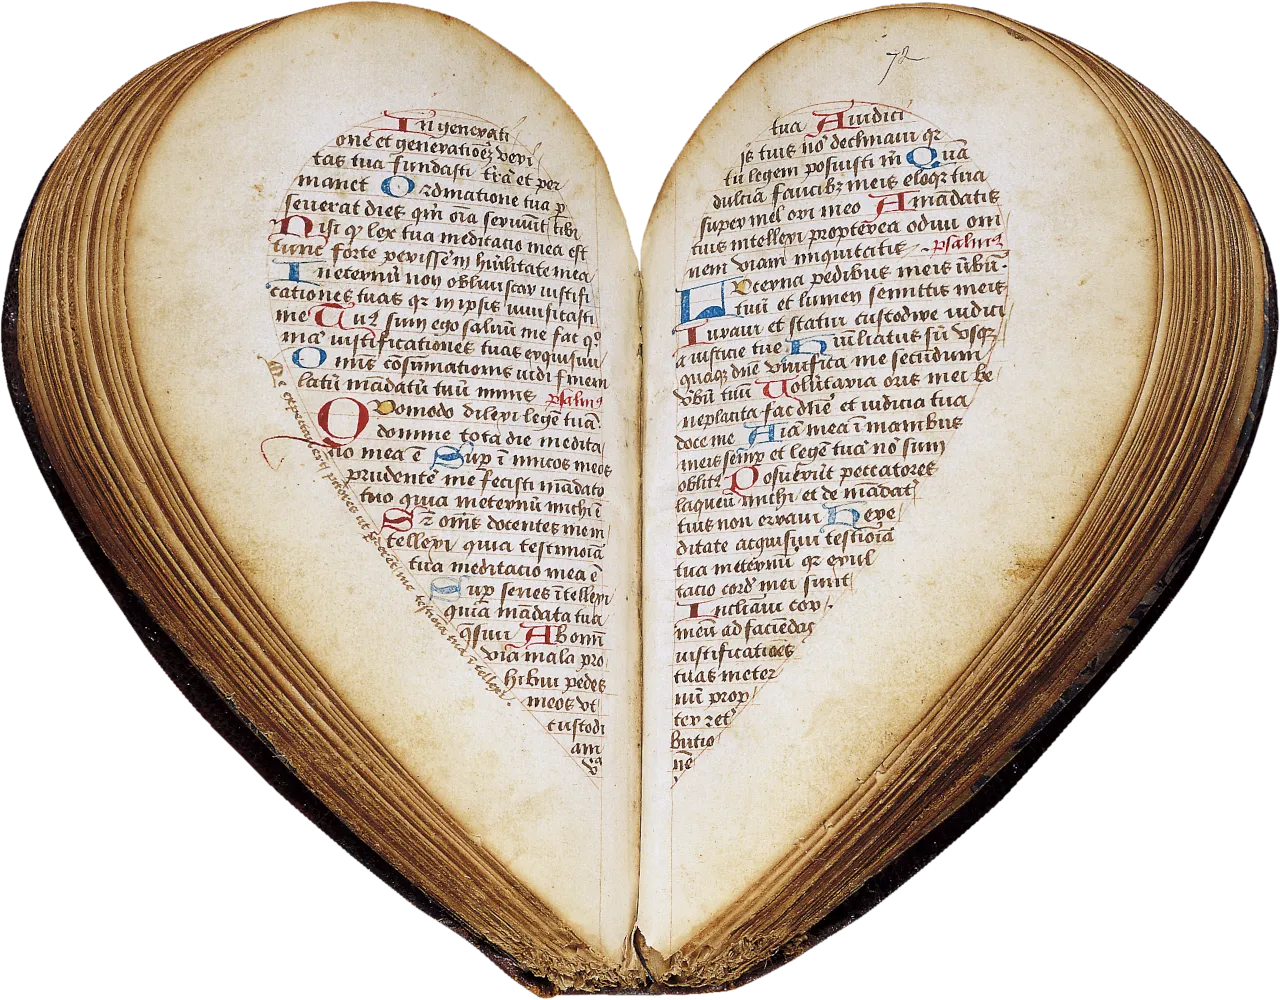 In generati
one et generatioēz veri
tas tua fundasti trā et per
manet Ordinatione tua p
seuerat dies qm̄ oīa seruiūt tibi
Nisi qꝫ lex tua meditacio mea est
tunc forte perissem ī hūilitate mea
In eternū non obliuiscar iustifi
cationes tuas qꝛ in ipsis uiuificasti
me Tuꝰ sum ego saluū me fac qꝛ
ma iustificationes tuas exquisiui
Omis cōsūmationis uidi finem
latū mādatū tuū nimis psalmꝰ
Quomodo dilexi legē tuā
domine tota die medita
tio mea ē Sup inimicos meos
prudentē me fecisti mādato
tuo quia ineternū michi ē
Sꝛ oms docentes me in
tellexi quia testimōia
tua meditacio mea ē
Sup senes ītellexi
quia mādata tua
q̄siui Ab omī
via mala pro
hibui pedes
meos vt
custodi
am
va
Me expectauerūt peccatores ut perderēt me testimōia tua ītellexi
72
tua A iudici
is tuis nō declinaui qꝛ
tu legem posuisti m̄ Quā
dulcia faucibꝫ meis eloqꝛ tua
super mel ori meo A mādatis
tuis intellexi propterea odiui om
nem viam iniquitatis psalmꝰ
Lucerna pedibus meis ūbū
tuū et lumen semittis meis
Iuraui et statui custodire iudici
a iusticie tue Humiliatus sū vsqꝫ
quaqꝫ dnē viuifica me secūdum
vbū tuū Voluntaria oris mei be
neplacita fac dnē et iudicia tua
doce me Aīa mea ī manibus
meis semp et legē tuā nō sum
oblitꝰ Posuerūt peccatores
laqueū michi et de mādatꝭ
tuis non erraui Here
ditate acquisiui testiōia
tua ineternū qꝛ exul
tacio cordꝭ mei sunt
Inclinaui cor
meū ad faciēdas
iustificatiōes
tuas ineter
nū prop
ter ret
butio
nē